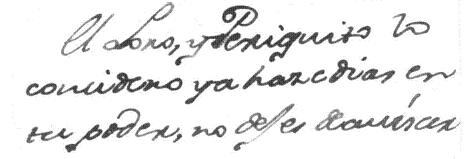 El Loro, y Periquito lo
considero ya haze dias en
su poder, no dejes de